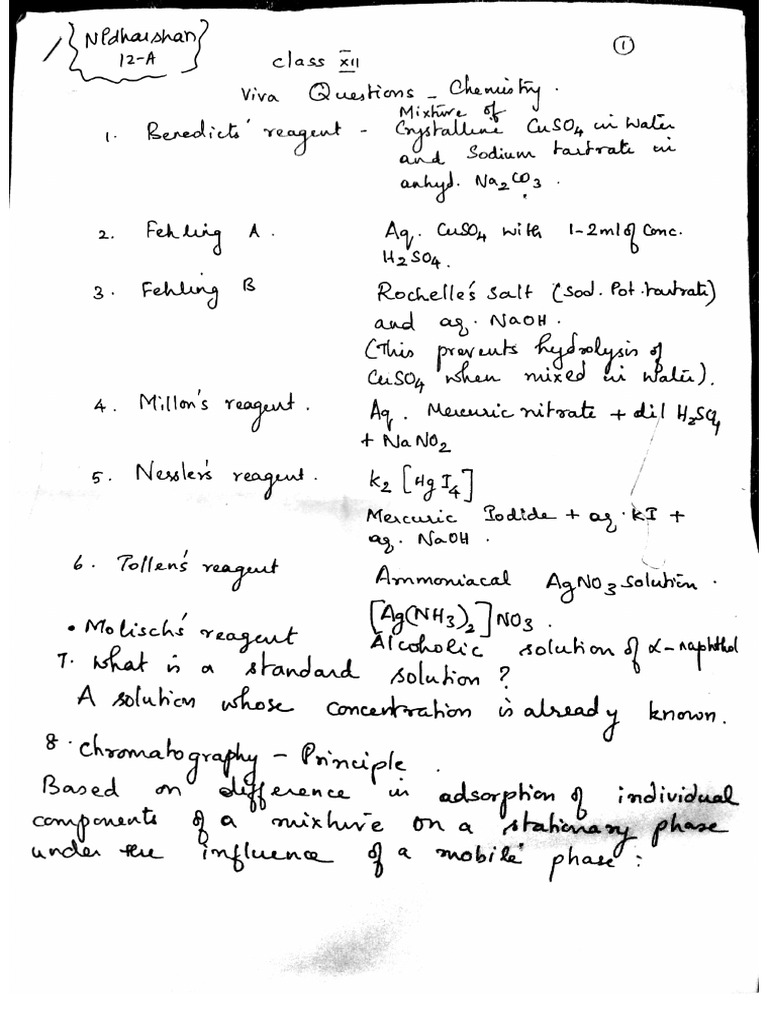 Npdharshan
12-A
①
Class XII
Viva Questions - Chemistry.
1. Benedicts' reagent - Mixture of
Crystalline CuSO4 in Water
and Sodium tartrate in
anhyd. Na2CO3.
2. Fehling A. Aq. CuSO4 with 1-2ml of Conc.
H2SO4.
3. Fehling B Rochelle's Salt (Sod. Pot. tartrate)
and aq. NaOH.
(This prevents hydrolysis of
CuSO4 when mixed in Water).
4. Millon's reagent. Aq. Mercuric nitrate + dil H2SO4
+ NaNO2
5. Nessler's reagent. K2[HgI4]
Mercuric Iodide + aq. KI +
aq. NaOH.
6. Tollen's reagent Ammoniacal AgNO3 solution.
[Ag(NH3)2]NO3.
• Molisch's reagent Alcoholic solution of α-naphthol
7. What is a standard solution?
A solution whose concentration is already known.
8. Chromatography - Principle.
Based on difference in adsorption of individual
components of a mixture on a stationary phase
under the influence of a mobile phase: